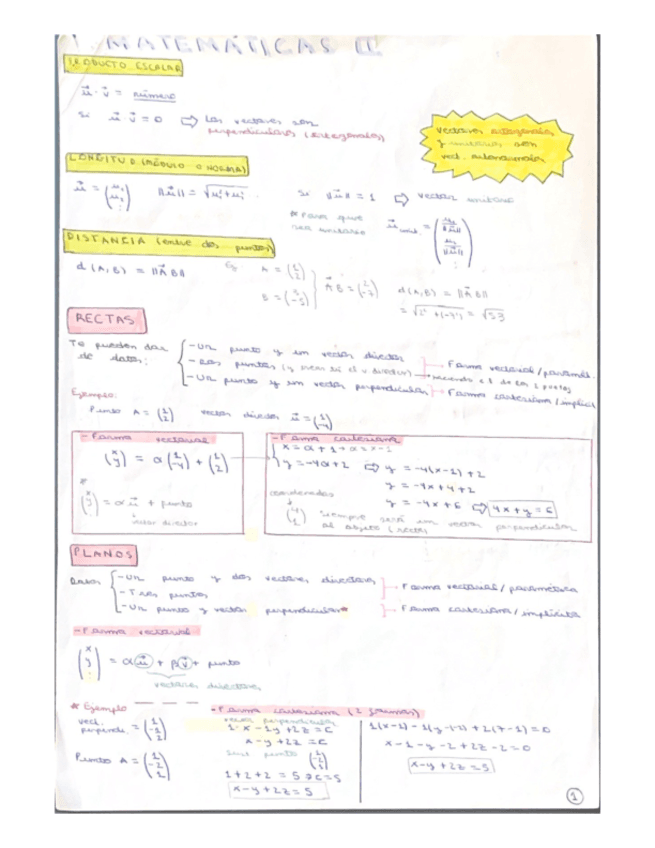 1. MATEMÁTICAS II
PRODUCTO ESCALAR
u⃗ · v⃗ = número
Si u⃗ · v⃗ = 0 ⇨ los vectores son perpendiculares (ortogonales)
vectores ortogonales y unitarios son vect. ortonormales
LONGITUD (MÓDULO O NORMA)
u⃗ = (u₁ u₂ ⋮) ||u⃗|| = √u₁²+u₂² Si ||u⃗|| = 1 ⇨ vector unitario
* Para que sea unitario u⃗ unit. = (u₁/||u⃗|| u₂/||u⃗|| ⋮)
DISTANCIA (entre dos puntos)
d (A, B) = ||A⃗B||
Ej A = (1 2) B = (3 -5) } A⃗B = (2 -7) d (A, B) = ||A⃗B||
= √2²+(-7)² = √53
RECTAS
Te pueden dar de datos:
- Un punto y un vector director
- Dos puntos (y creas tú el v. director) → haciendo e 1 de los 2 puntos
- Un punto y un vector perpendicular
Forma vectorial/paramét.
Forma cartesiana/implícit
Ejemplo:
Punto A = (1 2) vector director u⃗ = (1 -4)
- Forma vectorial
(x y) = α(1 -4) + (1 2)
(x y) = αu⃗ + punto
vector director
- Forma cartesiana
x = α + 1 → α = x-1
y = -4α + 2 ⇨ y = -4(x-1)+2
y = -4x+4+2
y = -4x+6 ⇨ 4x+y = 6
coordenadas
(4 1) siempre será un vector perpendicular al objeto (recta)
PLANOS
Datos
- Un punto y dos vectores directores
- Tres puntos
- Un punto y vector perpendicular*
Forma vectorial/paramétrica
Forma cartesiana/implícita
- Forma vectorial
(x y) = αu⃗ + βv⃗ + punto
vectores directores
* Ejemplo
vect. perpendi. = (1 -1 2)
Punto A = (1 -2 1)
- Forma cartesiana (2 formas)
vector perpendicular
1·x - 1y + 2z = C
x - y + 2z = C
punto (1 -2 1)
1 + 2 + 2 = 5 → C = 5
x - y + 2z = 5
1(x-1) - 1(y-(-2)) + 2(z-1) = 0
x - 1 - y - 2 + 2z - 2 = 0
x - y + 2z = 5
1